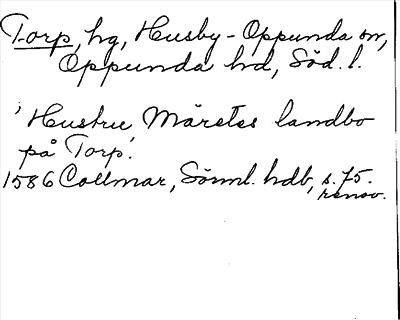 Torp, hg, Husby-Oppunda sn,
Oppunda hd, Söd. l.
'Hustru Märetes landbo
på Torp.'
1586 Collmar, Sörml. hdb, s. 75.
renov.